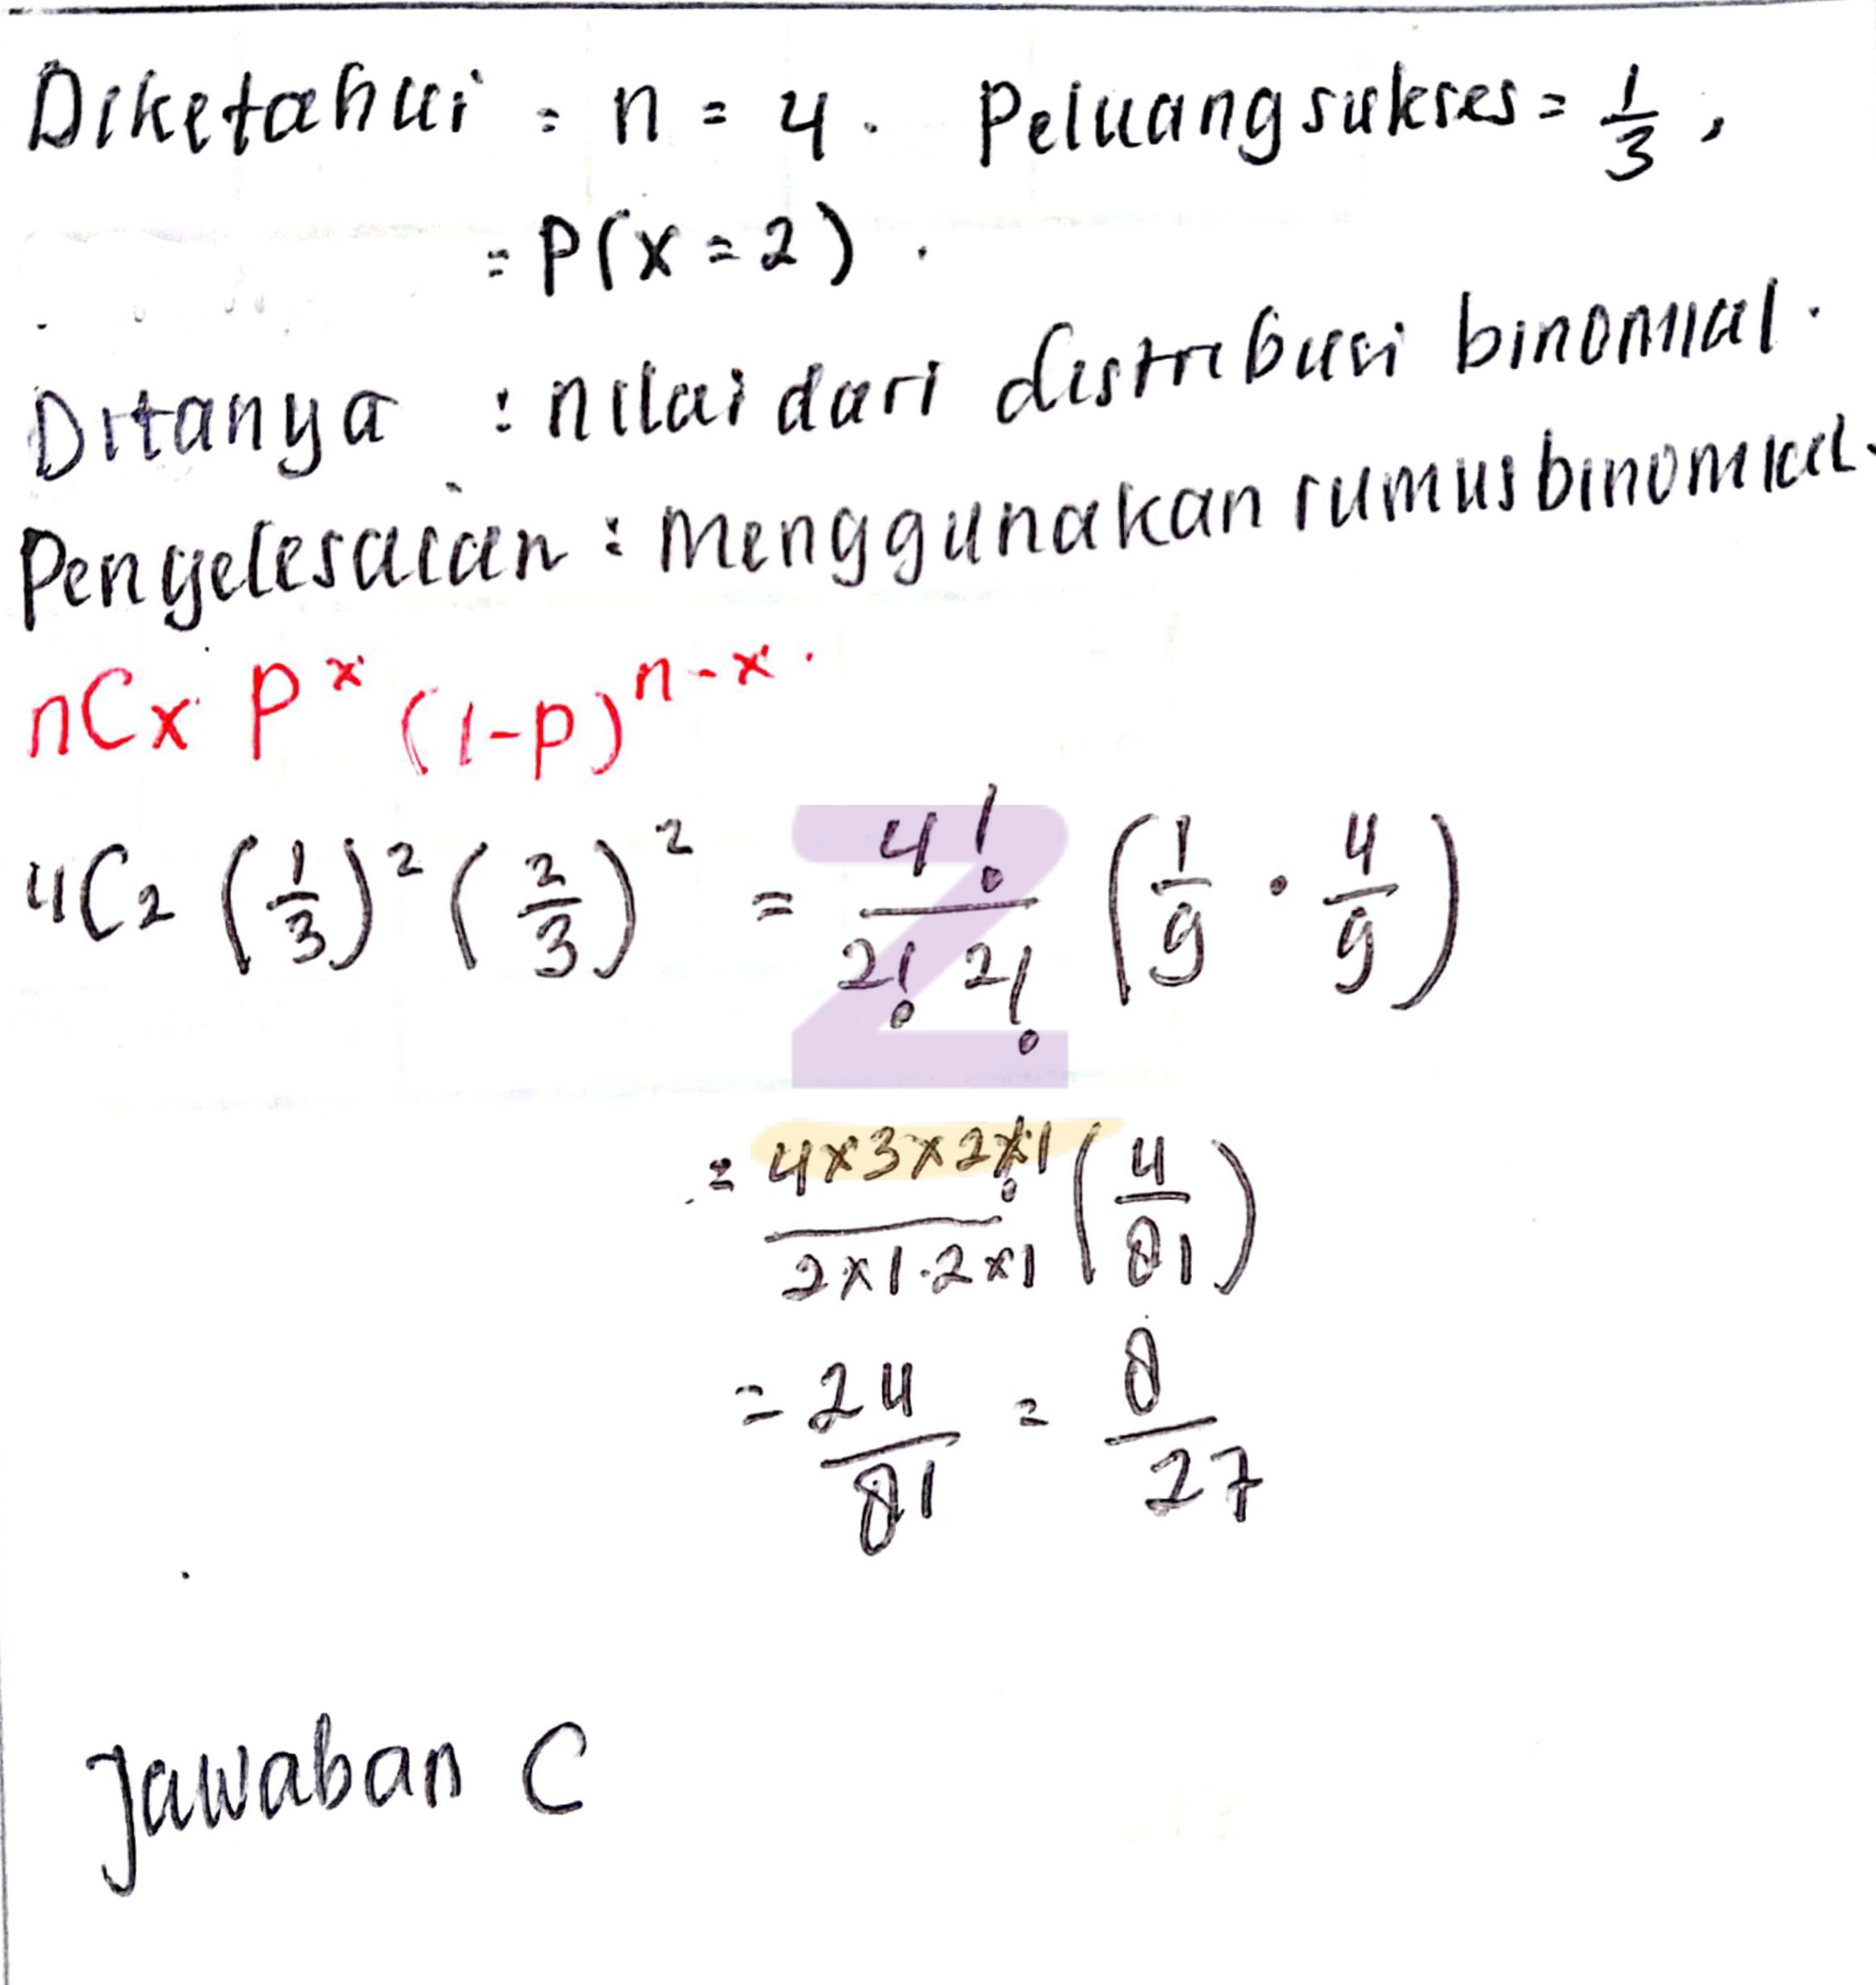 Diketahui = n = 4. Peluang sukses = 1/3,
= P(x = 2).
Ditanya : nilai dari distribusi binomial.
Penyelesaian : Menggunakan rumus binomial.
nCx P^x (1-P)^n-x.
4C2 (1/3)^2 (2/3)^2 = 4!/2! 2! (1/9 · 4/9)
Z
= 4x3x2x1/2x1.2x1 (4/81)
= 24/81 = 8/27
Jawaban C